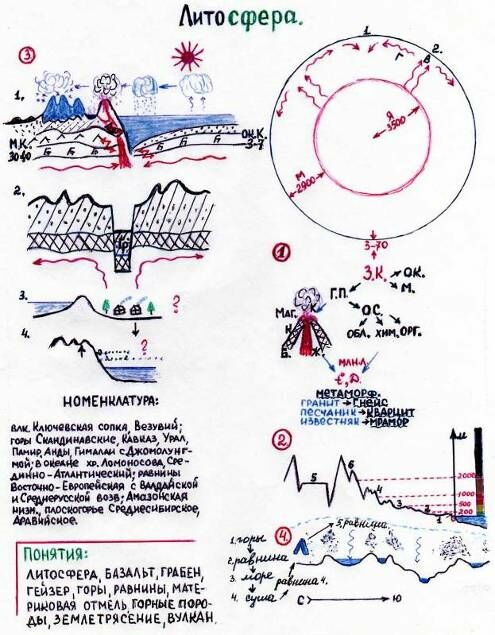 Литосфера.
3
1.
М.К.
30-40
Г
Б
Б
Б
Б
ОК.К.
3-7
2.
Гр.
3.
?
4.
?
1.
2.
Г
В
Я
3500
М
2900
3-70
1
З.К.
ОК.
М.
Г.П.
Маг.
ОС.
ОБЛ. ХИМ. ОРГ.
К
Б.
Ж.
МЛН.Л.
t°, Д.
МЕТАМОРФ.
ГРАНИТ → ГНЕЙС
ПЕСЧАНИК → КВАРЦИТ
ИЗВЕСТНЯК → МРАМОР
НОМЕНКЛАТУРА:
ВЛК. Ключевская сопка, Везувий;
горы Скандинавские, Кавказ, Урал,
Памир, Анды, Гималаи с Джомолунг-
мой; в океане хр. Ломоносова, Сре-
динно-Атлантический; равнины
Восточно-Европейская с Валдайской
и Среднерусской возв; Амазонская
низм., плоскогорье Среднесибирское,
Аравийское.
ПОНЯТИЯ:
ЛИТОСФЕРА, БАЗАЛЬТ, ГРАБЕН,
ГЕЙЗЕР, ГОРЫ, РАВНИНЫ, МАТЕ-
РИКОВАЯ ОТМЕЛЬ, ГОРНЫЕ ПОРО-
ДЫ, ЗЕМЛЕТРЯСЕНИЕ, ВУЛКАН.
2
м
5
6
4
3
2
1
2000
1000
500
200
4
5. равнина
1. горы
2. равнина
3. море
4. суша
равнина 4.
С
Ю